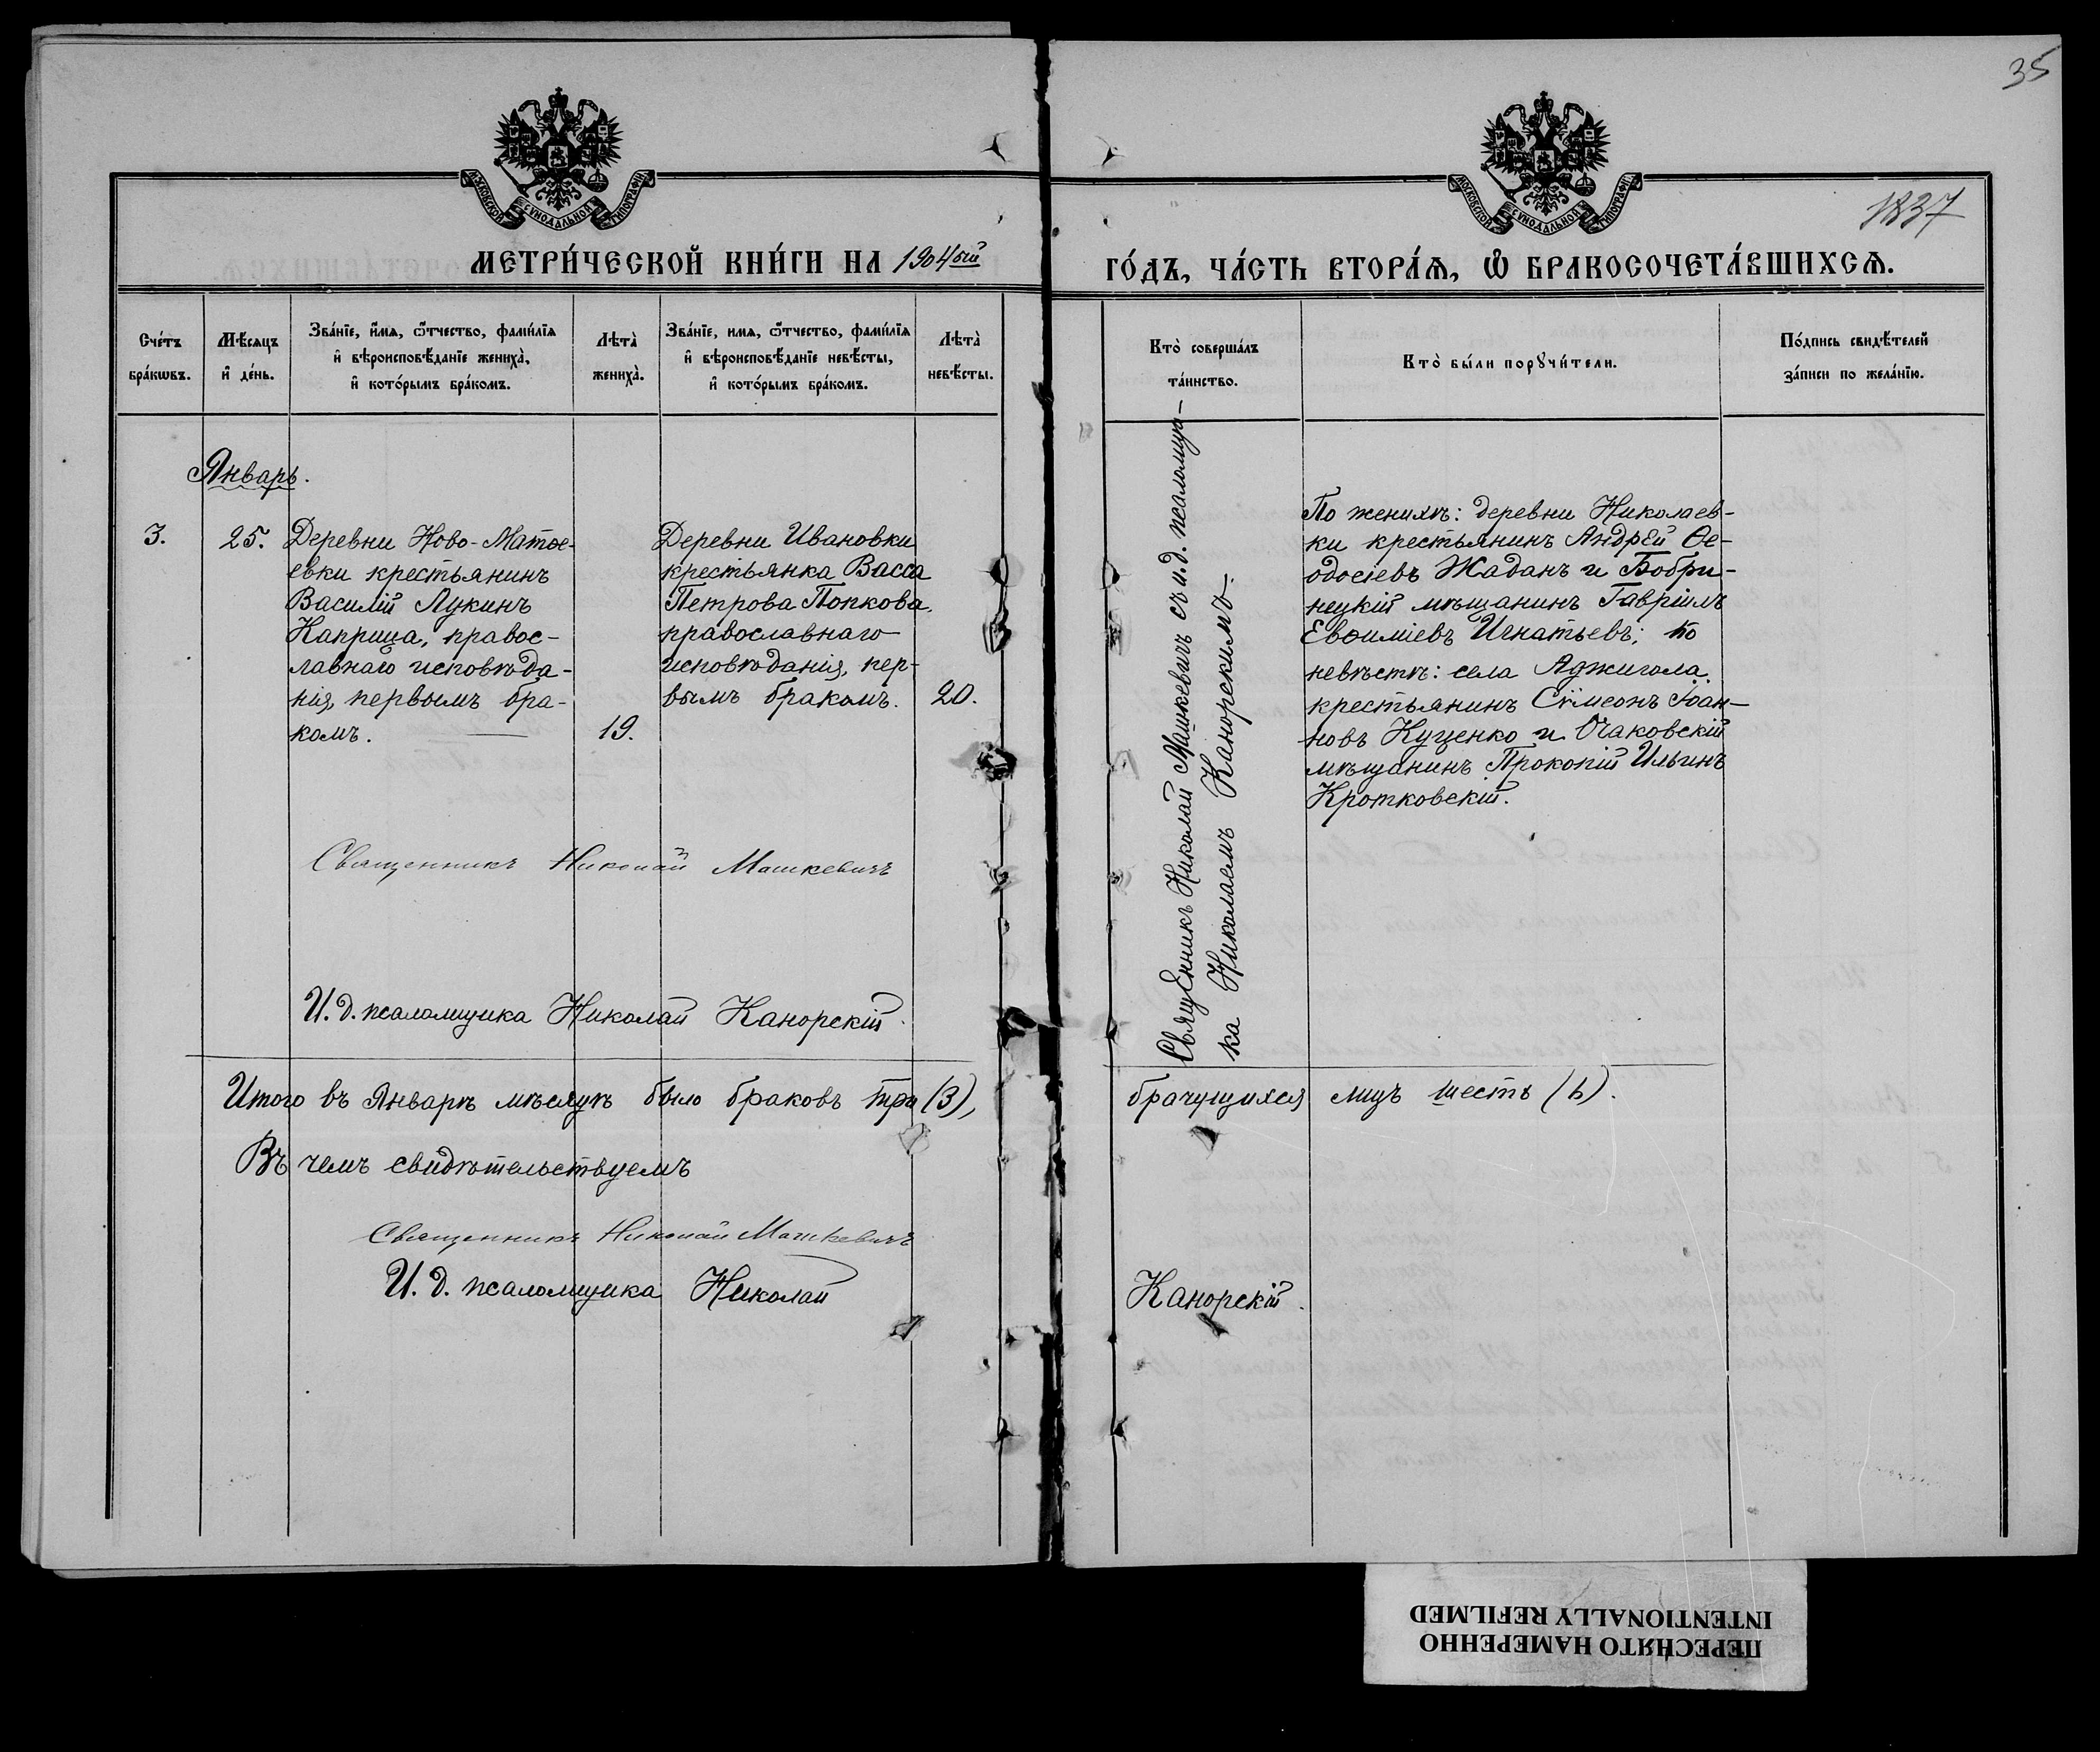 35
1837
МОСКОВСКОЙ СУНОДАЛЬНОЙ ТИПОГРАФІИ
МОСКОВСКОЙ СУНОДАЛЬНОЙ ТИПОГРАФІИ
МЕТРИ́ЧЕСКОЙ КНИ́ГИ НА 1904ый
ГО́ДЪ, ЧА́СТЬ ВТОРА́Ѧ, Ѡ҆ БРАКОСОЧЕТА́ВШИХСѦ.
Сче́тъ
бра́кѡвъ.
Мѣ́сяцъ
и҆ де́нь.
Зва́нїе, и҆́мѧ, ѻ҆́тчество, фами́лїѧ
и҆ вѣроисповѣ́данїе жениха̀,
и҆ кото́рымъ бра́комъ.
Лѣта̀
жениха̀.
Зва́нїе, имѧ, ѻ҆́тчество, фами́лїѧ
и҆ вѣроисповѣ́данїе невѣ́сты,
и҆ кото́рымъ бра́комъ.
Лѣта̀
невѣ́сты.
Кто̀ соверша́лъ
та́инство.
Кто̀ бы́ли порꙋчи́тели.
По́дпись свидѣ́телей
за́писи по жела́нїю.
Январь.
3.
25.
Деревни Ново-Матве-
евки крестьянинъ
Василій Лукинъ
Каприца, правос-
лавнаго исповѣда-
нія, первымъ бра-
комъ.
19.
Деревни Ивановки
крестьянка Васса
Петрова Попкова,
православнаго
исповѣданія, пер-
вымъ бракомъ.
20.
Священникъ Николай Машкевичъ съ и. д. псаломщи-
ка Николаемъ Канорскимъ.
По женихѣ: деревни Николаев-
ки крестьянинъ Андрей Ѳе-
одосіевъ Жаданъ и Бобри-
нецкій мѣщанинъ Гавріилъ
Евѳиміевъ Игнатьевъ; по
невѣстѣ: села Аджигола
крестьянинъ Сѵмеонъ Іоан-
новъ Куценко и Очаковскій
мѣщанинъ Прокопій Ильинъ
Кротковскій.
Священникъ Николай Машкевичъ
И. д. псаломщика Николай Канорскій.
Итого въ Январѣ мѣсяцѣ было браковъ три (3),
брачущихся лицъ шесть (6).
Въ чемъ свидѣтельствуемъ
Священникъ Николай Машкевичъ
И. д. псаломщика Николай
Канорскій.
ПЕРЕСНЯТО НАМЕРЕННО
INTENTIONALLY REFILMED